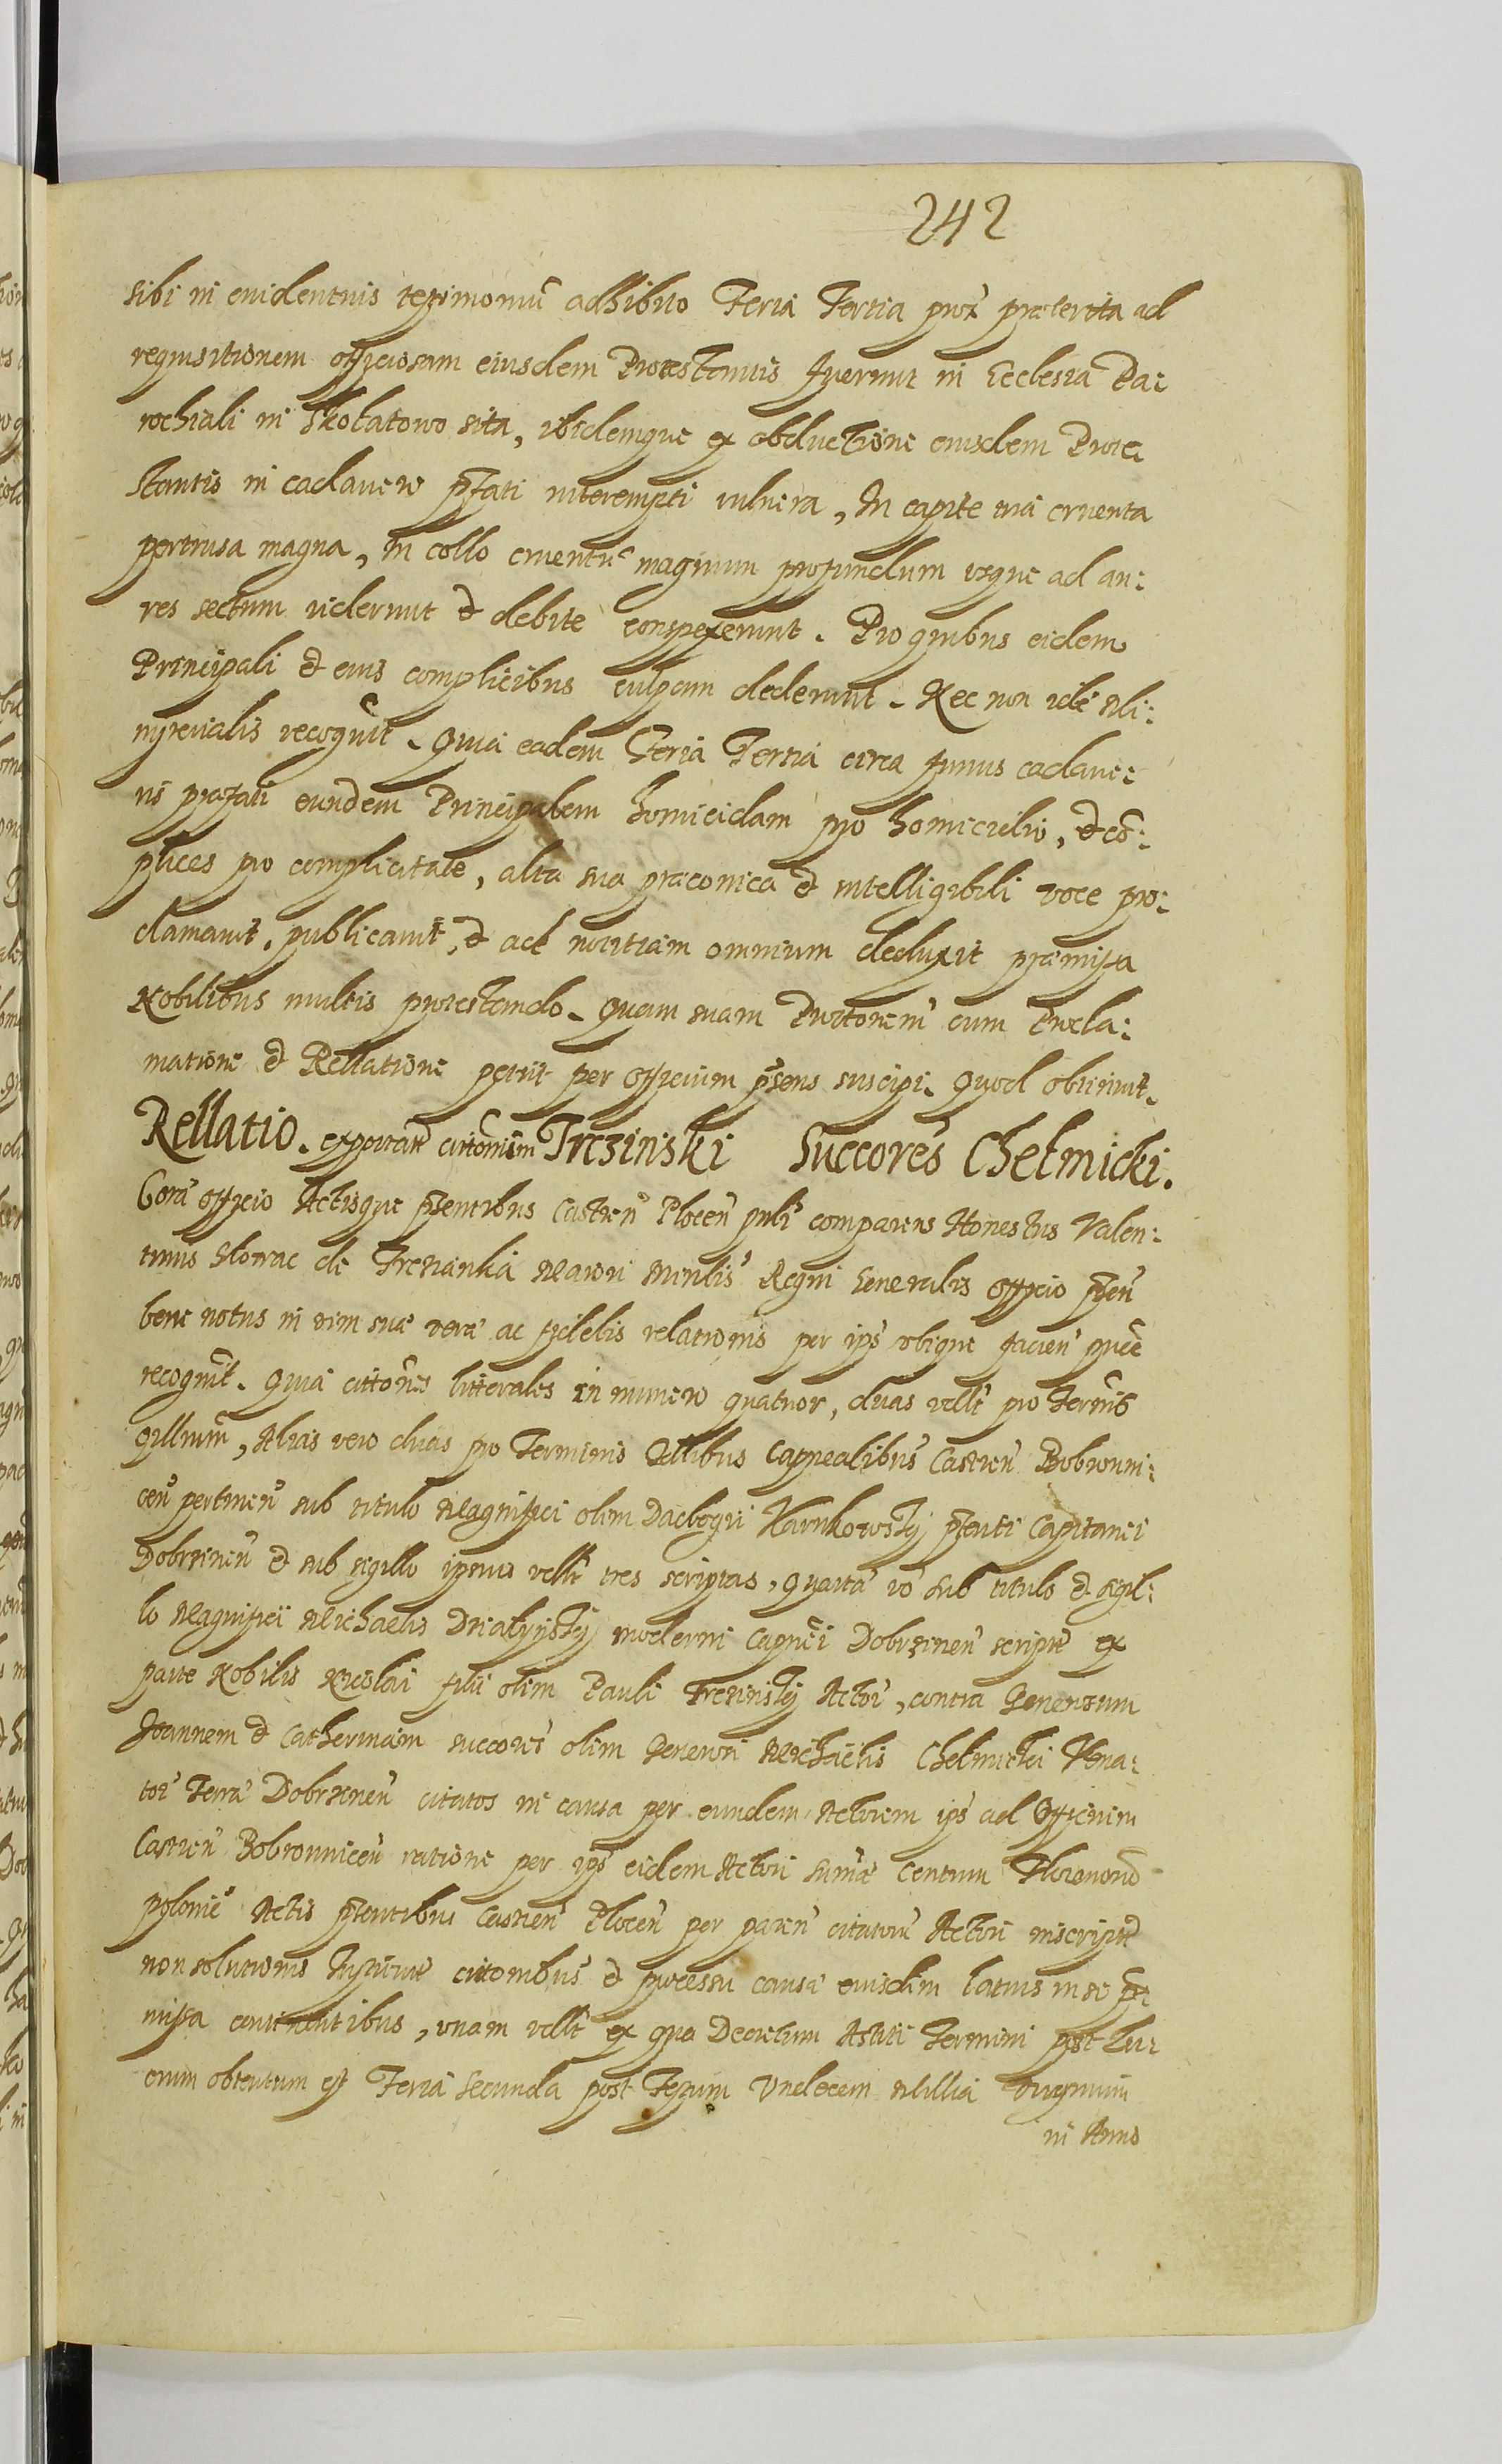 242
sibi in euidentius testimoniũ adhibito Feria Tertia prox̃ praeterita ad
requisitionem officiosam eiusdem Protestantis fuerunt in Ecclesia Pa:
rochiali in Skołatowo sita, ibidemque ex obductione eiusdem Prote
stantis in cadauere pf̃ati interempti vulnera, In capite tria cruenta
pertusa magna, In collo cruentũ magnum profundum vsque ad au:
res sectum viderunt et debite conspexerunt. Pro quibus eidem
Principali et eius complicibus culpam dederunt. Nec non idẽ Mi:
nysterialis recognũit. Quia eadem Feria Tertia circa funus cadaue:
ris praefati eundem Principalem homicidam pro homicidio, et cõ:
plices pro complicitate, alta sua praeconica et intelligibili voce pro:
clamauit, publicauit, et ad notitiam omnium deduxit praemissa
Nobilibus multis protestando. Quam suam Prõttonem cum Procla:
matione et Rellatione petiit per officium pñsens suscipi. Quod obtinuit.
Rellatio. exportatar̃ cittõnum Trczinski Succores Chełmicki.
Corã officio Actisque pñtentibus Castreñ Ploceñ pnlr̃ comparens Honestus Valen:
tinus Slotrac de Trczianka Maiori Minrlis Regni Generalis officio pñseñ
bene notus in vim suae verae ac fidelis relationis per ips̃ vbique facieñ
recognũit. Quia cittõnes litterales in numero quatuor, duas vellt̃ pro Terminis
Qllnum, Alias vero duas pro Terminis Qllibus Capnealibus Castreñ Bobrowni:
ceñ pertineñ sub titulo Magnifici olim Dadbogii Karnkowsky pñteriti Capitanei
Dobrzineñ et sub sigillo ipsius vellt̃ tres scriptas, Quartã vo sub titulo et sigil:
lo Magnifici Michaelis Działynsky moderni Capnei Dobrzineñ script̃ ex
parte Nobilis Nicolai filii olim Pauli Trczinsky Actor̃, contra Generosum
Joannem et Catherinam succores olim Generosi Michaelis Chełmicki Vena:
tor̃ Terrae Dobrzineñ citatos in causa per eundem Actorem ips̃ ad Officium
Castreñ Bobrowniceñ ratione per ips̃ eidem Actori summae Centum Florenorũ
polonic̃ Actis pñtentibus Castreñ Ploceñ per pareñ citatorũ Actori inscript̃
non solutionis cittonibus et processu causae eiusdem latius in se prae
missa continentibus, vnam vellt̃ ex qua Decretum Astiti Termini post lu:
crum obtentum est Feria Secunda post Festum Vndecem Millia virginum
in Anno